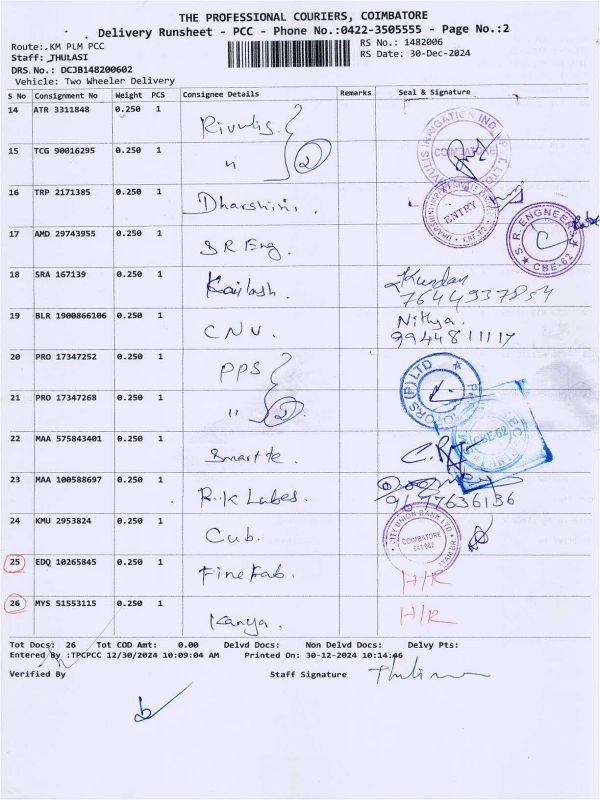 THE PROFESSIONAL COURIERS, COIMBATORE
Delivery Runsheet - PCC - Phone No.:0422-3505555 - Page No.:2
Route:.KM PLM PCC
RS No.: 1482006
Staff: THULASI
RS Date: 30-Dec-2024
DRS.No.: DCJB148200602
Vehicle: Two Wheeler Delivery
S No Consignment No Weight PCS Consignee Details Remarks Seal & Signature
14 ATR 3311848 0.250 1 Rivulis.
15 TCG 90016295 0.250 1 " 2
COIMBATORE
16 TRP 2171385 0.250 1 Dharshini.
ENTRY
CBE-62
17 AMD 29743955 0.250 1 S R Eng.
S. R. ENGNEERS
CBE-62
18 SRA 167139 0.250 1 Kailash. Kundan
7644937854
19 BLR 1900866106 0.250 1 CNV. Nithya.
9944811117
20 PRO 17347252 0.250 1 PPS
21 PRO 17347268 0.250 1 " 2
22 MAA 575843401 0.250 1 Smartte.
23 MAA 100588697 0.250 1 R.K Labes.
91977636136
24 KMU 2953824 0.250 1 Cub.
CITY UNION BANK LTD
COIMBATORE
25 EDQ 10265845 0.250 1 Fine Fab. H/R
26 MYS 51553115 0.250 1 Kanya. H/R
Tot Docs: 26 Tot COD Amt: 0.00 Delvd Docs: Non Delvd Docs: Delvy Pts:
Entered By :TPCPCC 12/30/2024 10:09:04 AM Printed On: 30-12-2024 10:14:46
Verified By Staff Signature